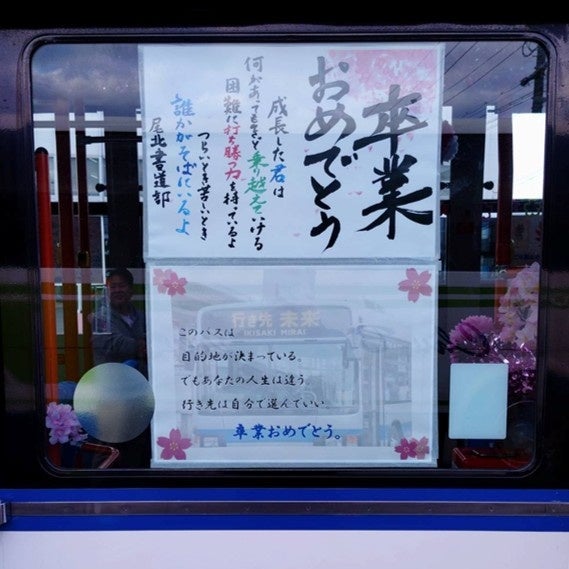 卒業
おめでとう
成長した君は
何があってもきっと乗り越えていける
困難に打ち勝つ力を持っているよ
つらいとき苦しいとき
誰かがそばにいるよ
尾北書道部
行き先 未来
IKISAKI MIRAI
このバスは
目的地が決まっている。
でもあなたの人生は違う。
行き先は自分で選んでいい。
卒業おめでとう。